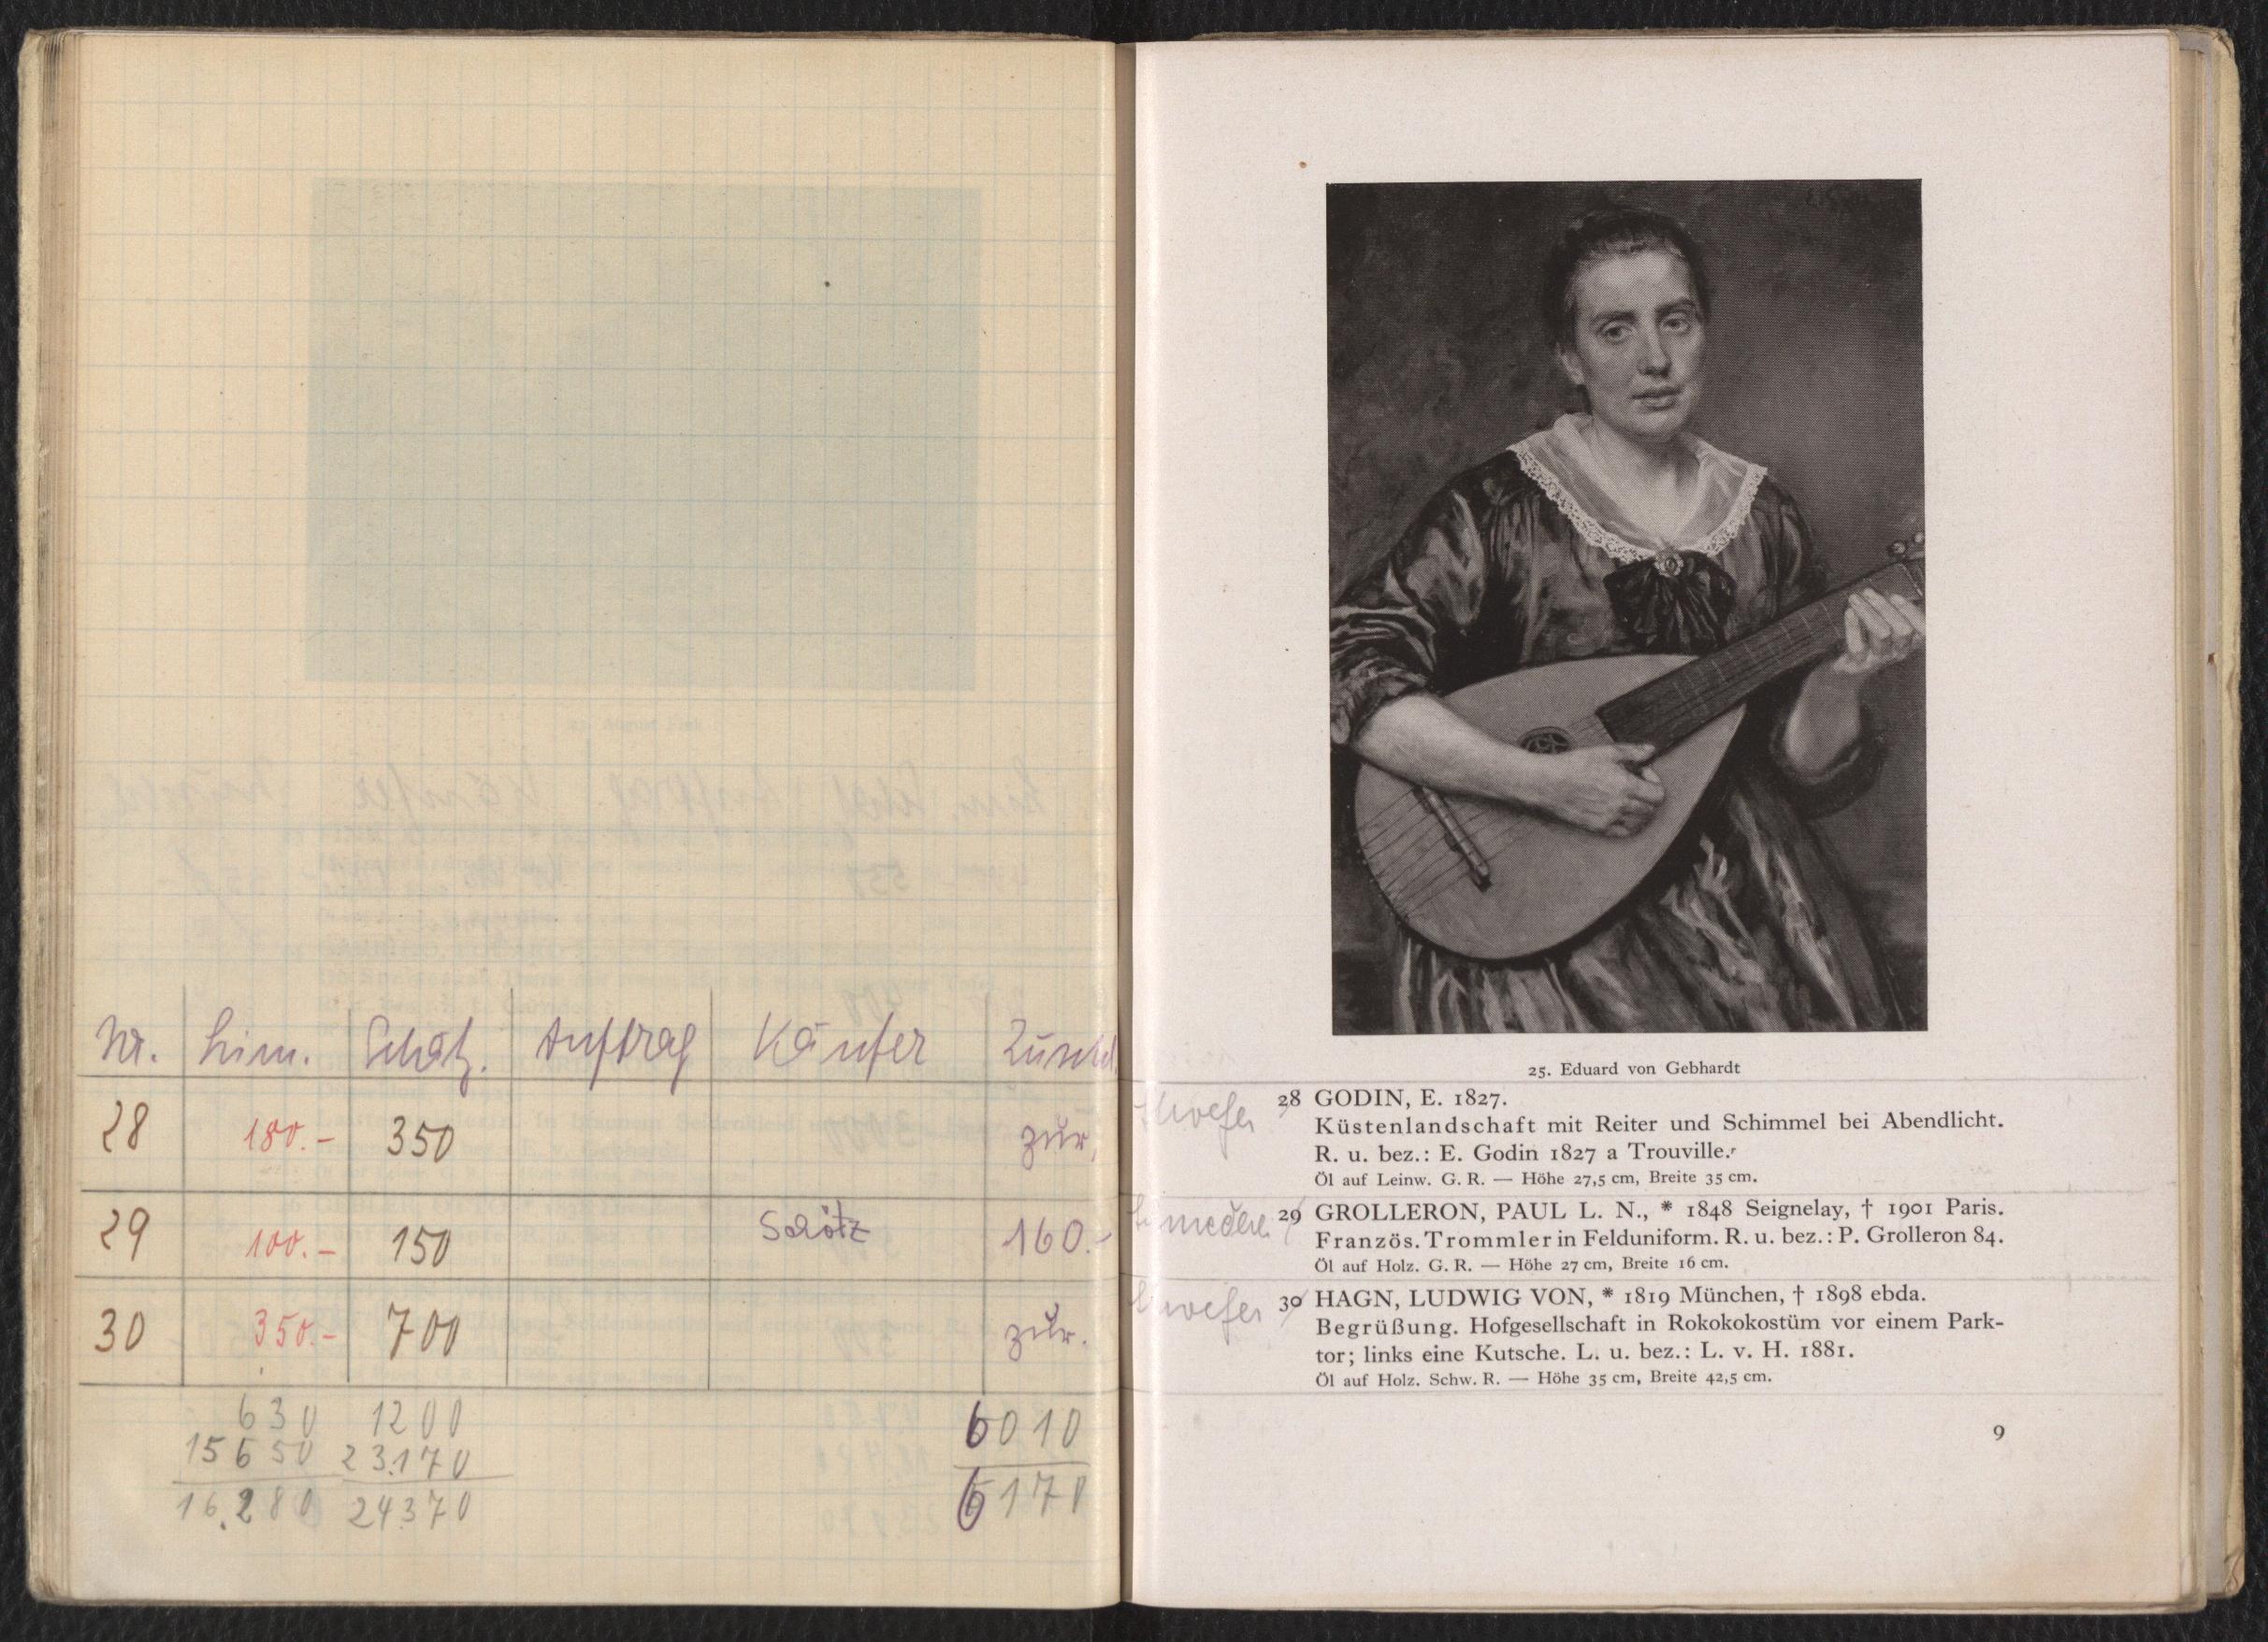 Nr. Lim. Schätz. Auftrag Käufer Zuschl
28 180.- 350 zur.
29 100.- 150 Schötz 160.-
30 350.- 700 zur.
630 1200 6010
15650 23.170
16.280 24370 6170
25. Eduard von Gebhardt
28 GODIN, E. 1827.
Küstenlandschaft mit Reiter und Schimmel bei Abendlicht.
R. u. bez.: E. Godin 1827 a Trouville.
Öl auf Leinw. G. R. — Höhe 27,5 cm, Breite 35 cm.
29 GROLLERON, PAUL L. N., * 1848 Seignelay, † 1901 Paris.
Französ. Trommler in Felduniform. R. u. bez.: P. Grolleron 84.
Öl auf Holz. G. R. — Höhe 27 cm, Breite 16 cm.
30 HAGN, LUDWIG VON, * 1819 München, † 1898 ebda.
Begrüßung. Hofgesellschaft in Rokokokostüm vor einem Park-
tor; links eine Kutsche. L. u. bez.: L. v. H. 1881.
Öl auf Holz. Schw. R. — Höhe 35 cm, Breite 42,5 cm.
9